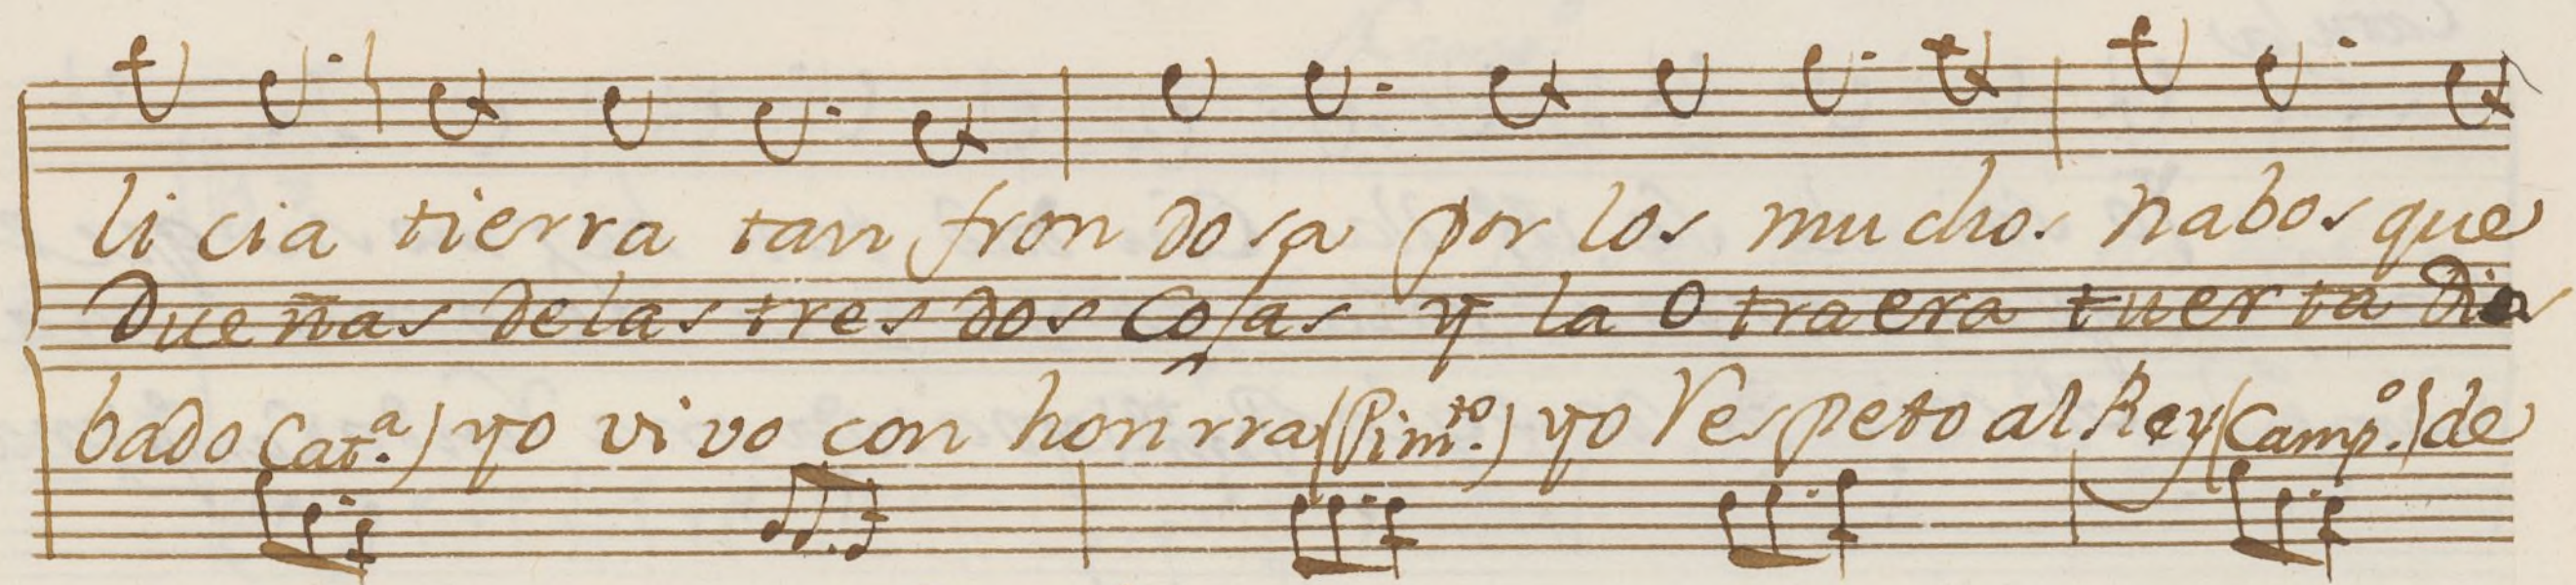 li cia tierra tan fron dosa por los muchos nabos que
Dueñas delas tres dos cojas y la Otra era tuerta Dia
bado (Cat.ª) yo vivo con honrra (Pim.to) yo Respeto al Rey (Camp.º) de